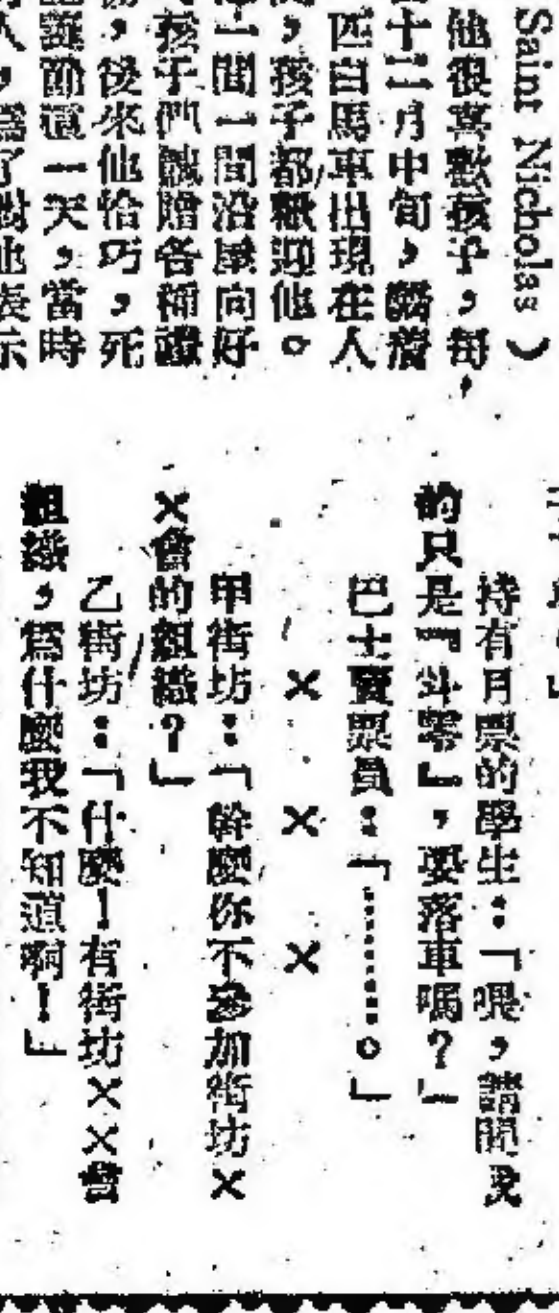 Saint Nicholas ）
他很喜歡孩子，每
十二月中旬，騎着
匹白馬車出現在人
，孩子都歡迎他。
一間一間沿屋向好
孩子們餽贈各種禮
，後來他恰巧，死
道一天，當時
人，爲了對他表示
持有月票的學生：「喂，請問
的只是『斗零』，要落車嗎？」
巴士賣票員：「………。」
×　×　×
甲街坊：「幹麼你不參加街坊×
×會的組織？」
乙街坊：「什麼！有街坊××會
組織，爲什麼我不知道啊！」